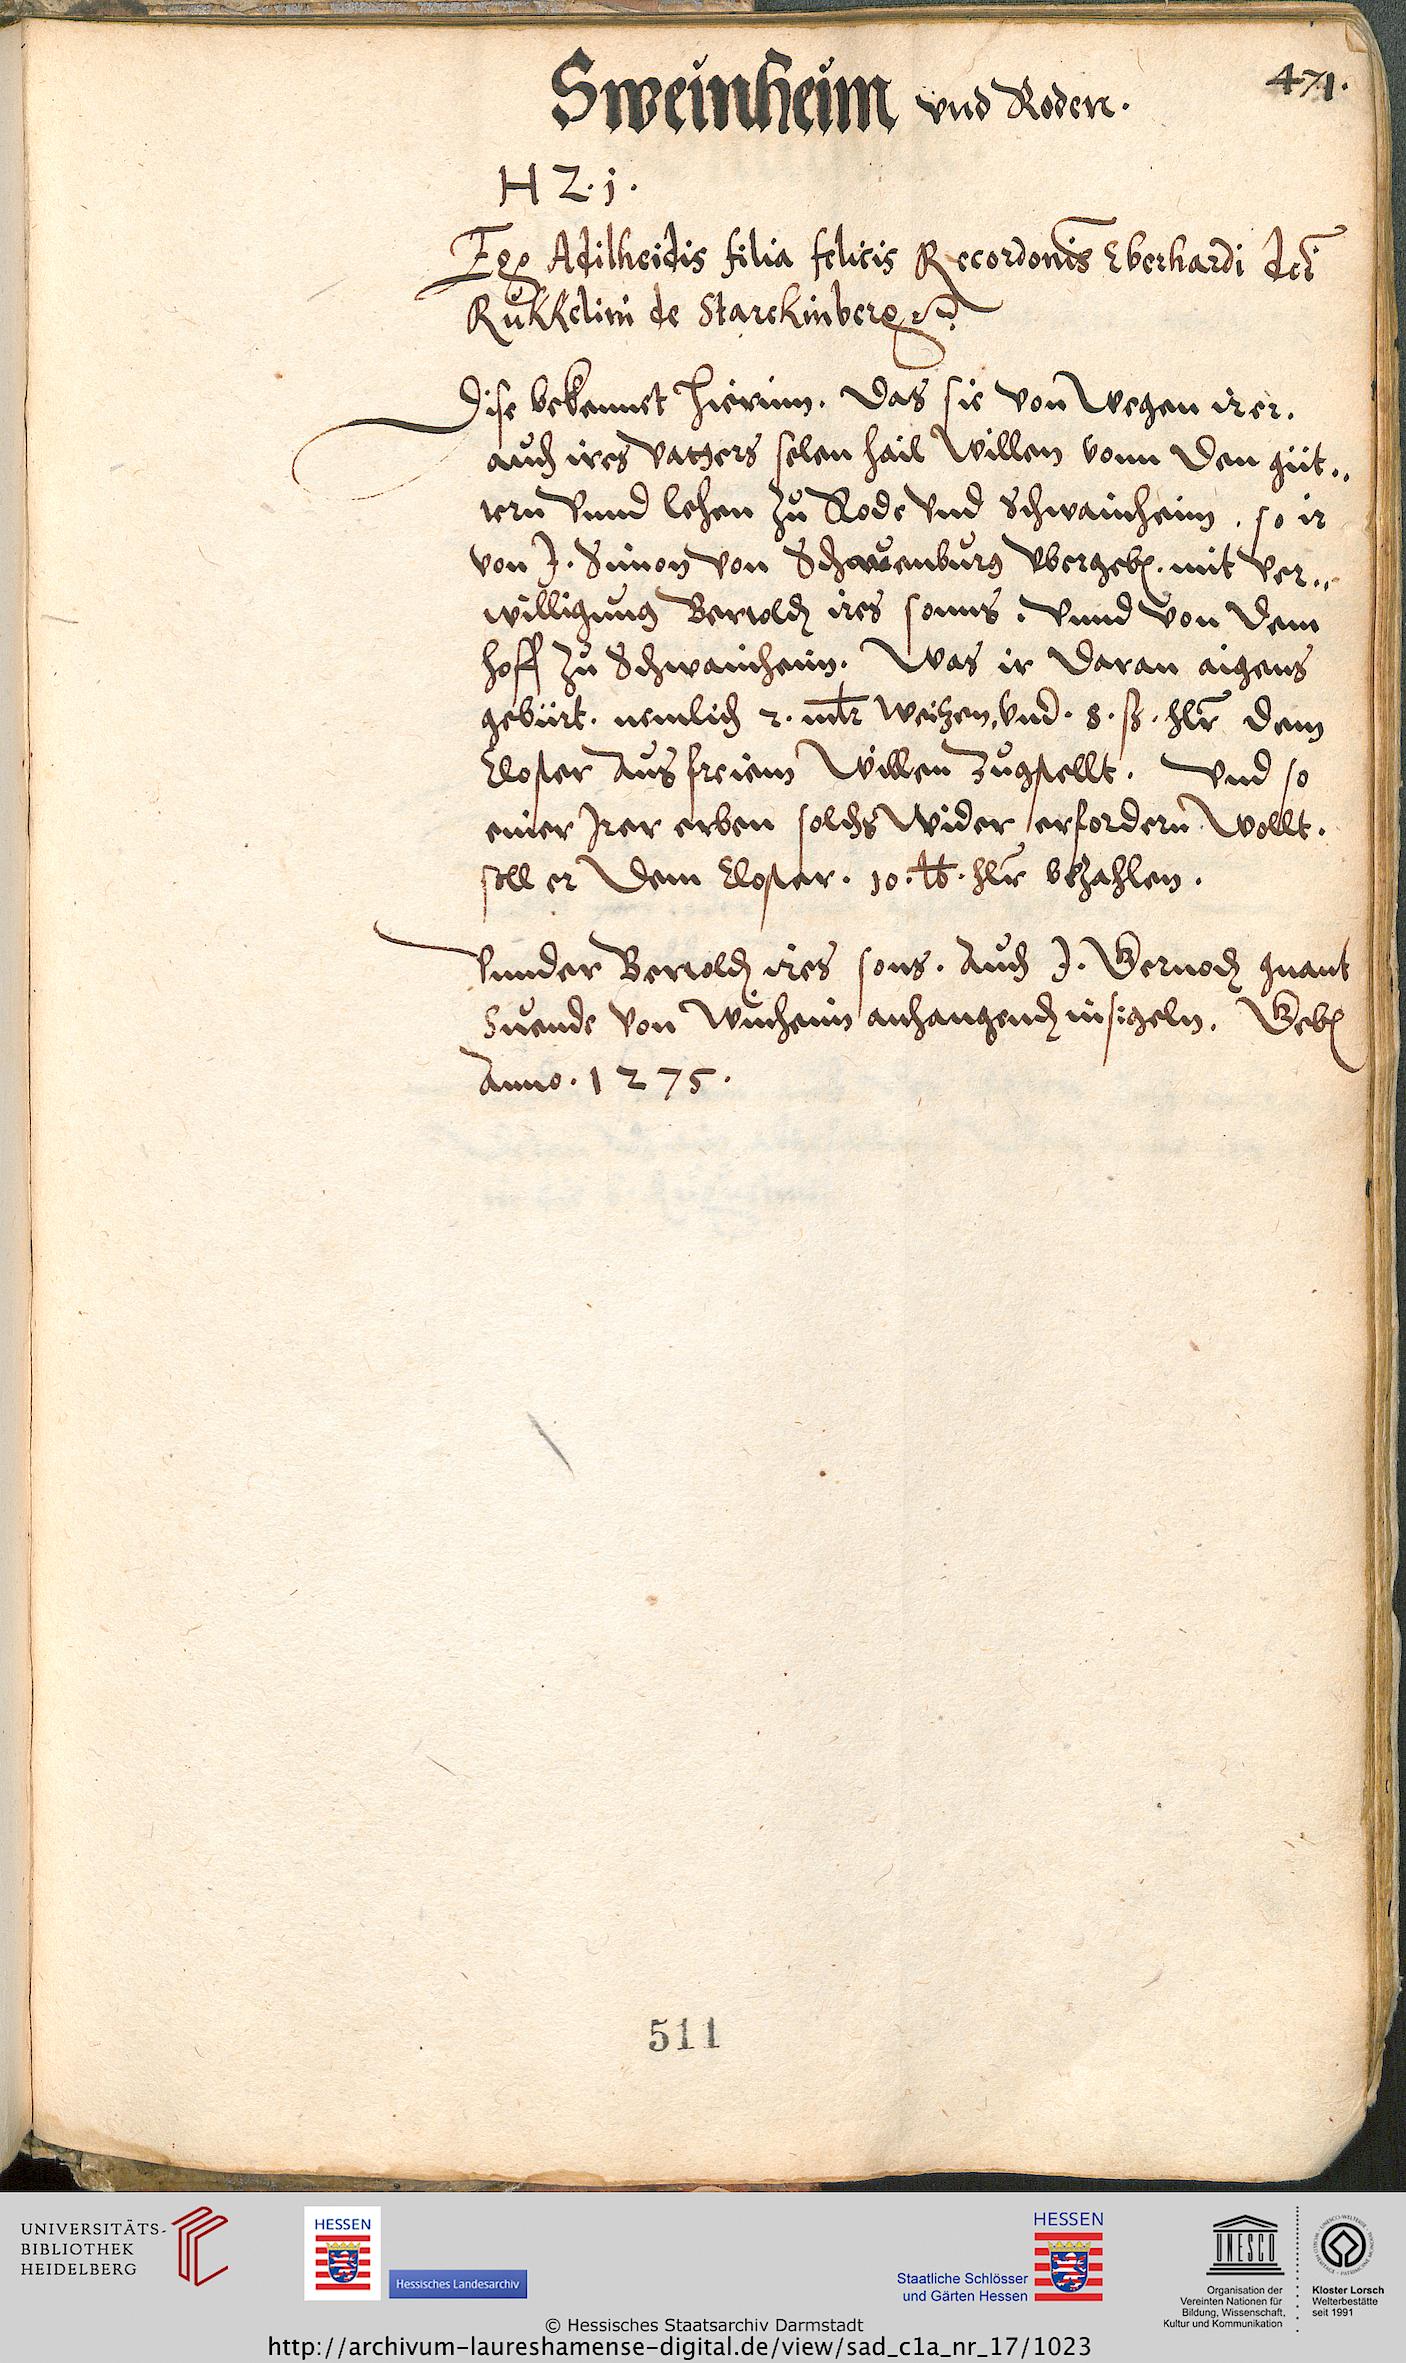 471.
Sweinheim vnd Roden.
H Z. j.
Ego Adilheidis filia felicis Recordonis Eberhardi dcti
Rukkelini de Starckinberg
Dise bekennet hierinn. Das sie von wegen irer.
auch ires vatters selen hail willen vonn den güt„
tern vnnd lehen zu Rode vnd Schwainheim. so ir
von J. Simon von Schauenburg vbergeb. mit ver„
willigung Bertold ires sonns. vnnd von dem
hoff zu Schwainheim. Was ir daran aigens
gebürt. nemlich 2. mltr weitzen, vnd. 8. ß. hlr dem
Closter aus freiem willen zugstellt. vnd so
einer Jrer erben solchs wider erfordern wollt.
soll er dem Closter. 10. lb. hlr bezahlen.
vnnder Bertold ires sons. auch J. Gernod gnant
Suende von Winheim anhangend insigeln. Geb
Anno. 1275.
511
UNIVERSITÄTS-
BIBLIOTHEK
HEIDELBERG
HESSEN
Hessisches Landesarchiv
HESSEN
Staatliche Schlösser
und Gärten Hessen
UNESCO
Organisation der
Vereinten Nationen für
Bildung, Wissenschaft,
Kultur und Kommunikation
Kloster Lorsch
Welterbestätte
seit 1991
© Hessisches Staatsarchiv Darmstadt
http://archivum-laureshamense-digital.de/view/sad_c1a_nr_17/1023